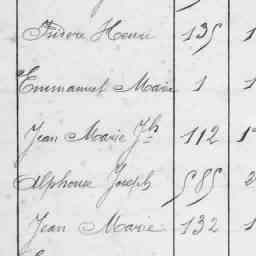 Isidore Henri 135 1
Emmanuel Marie 1 1
Jean Marie Jh 112 1
Alphonse Joseph 585 2
Jean Marie 132 1